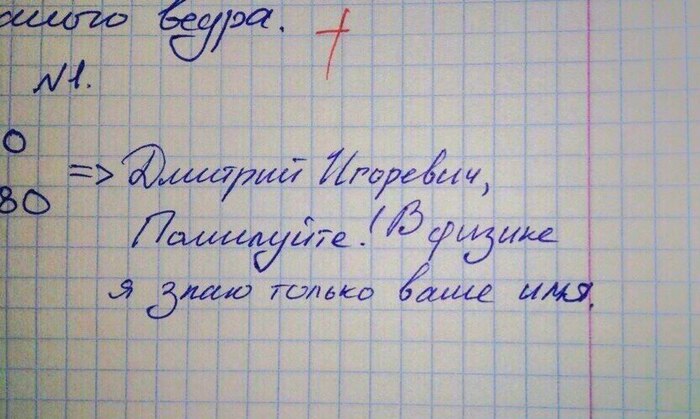 алого ведра.
N1.
0
80
=> Дмитрий Игоревич,
Помилуйте! В физике
я знаю только ваше имя.